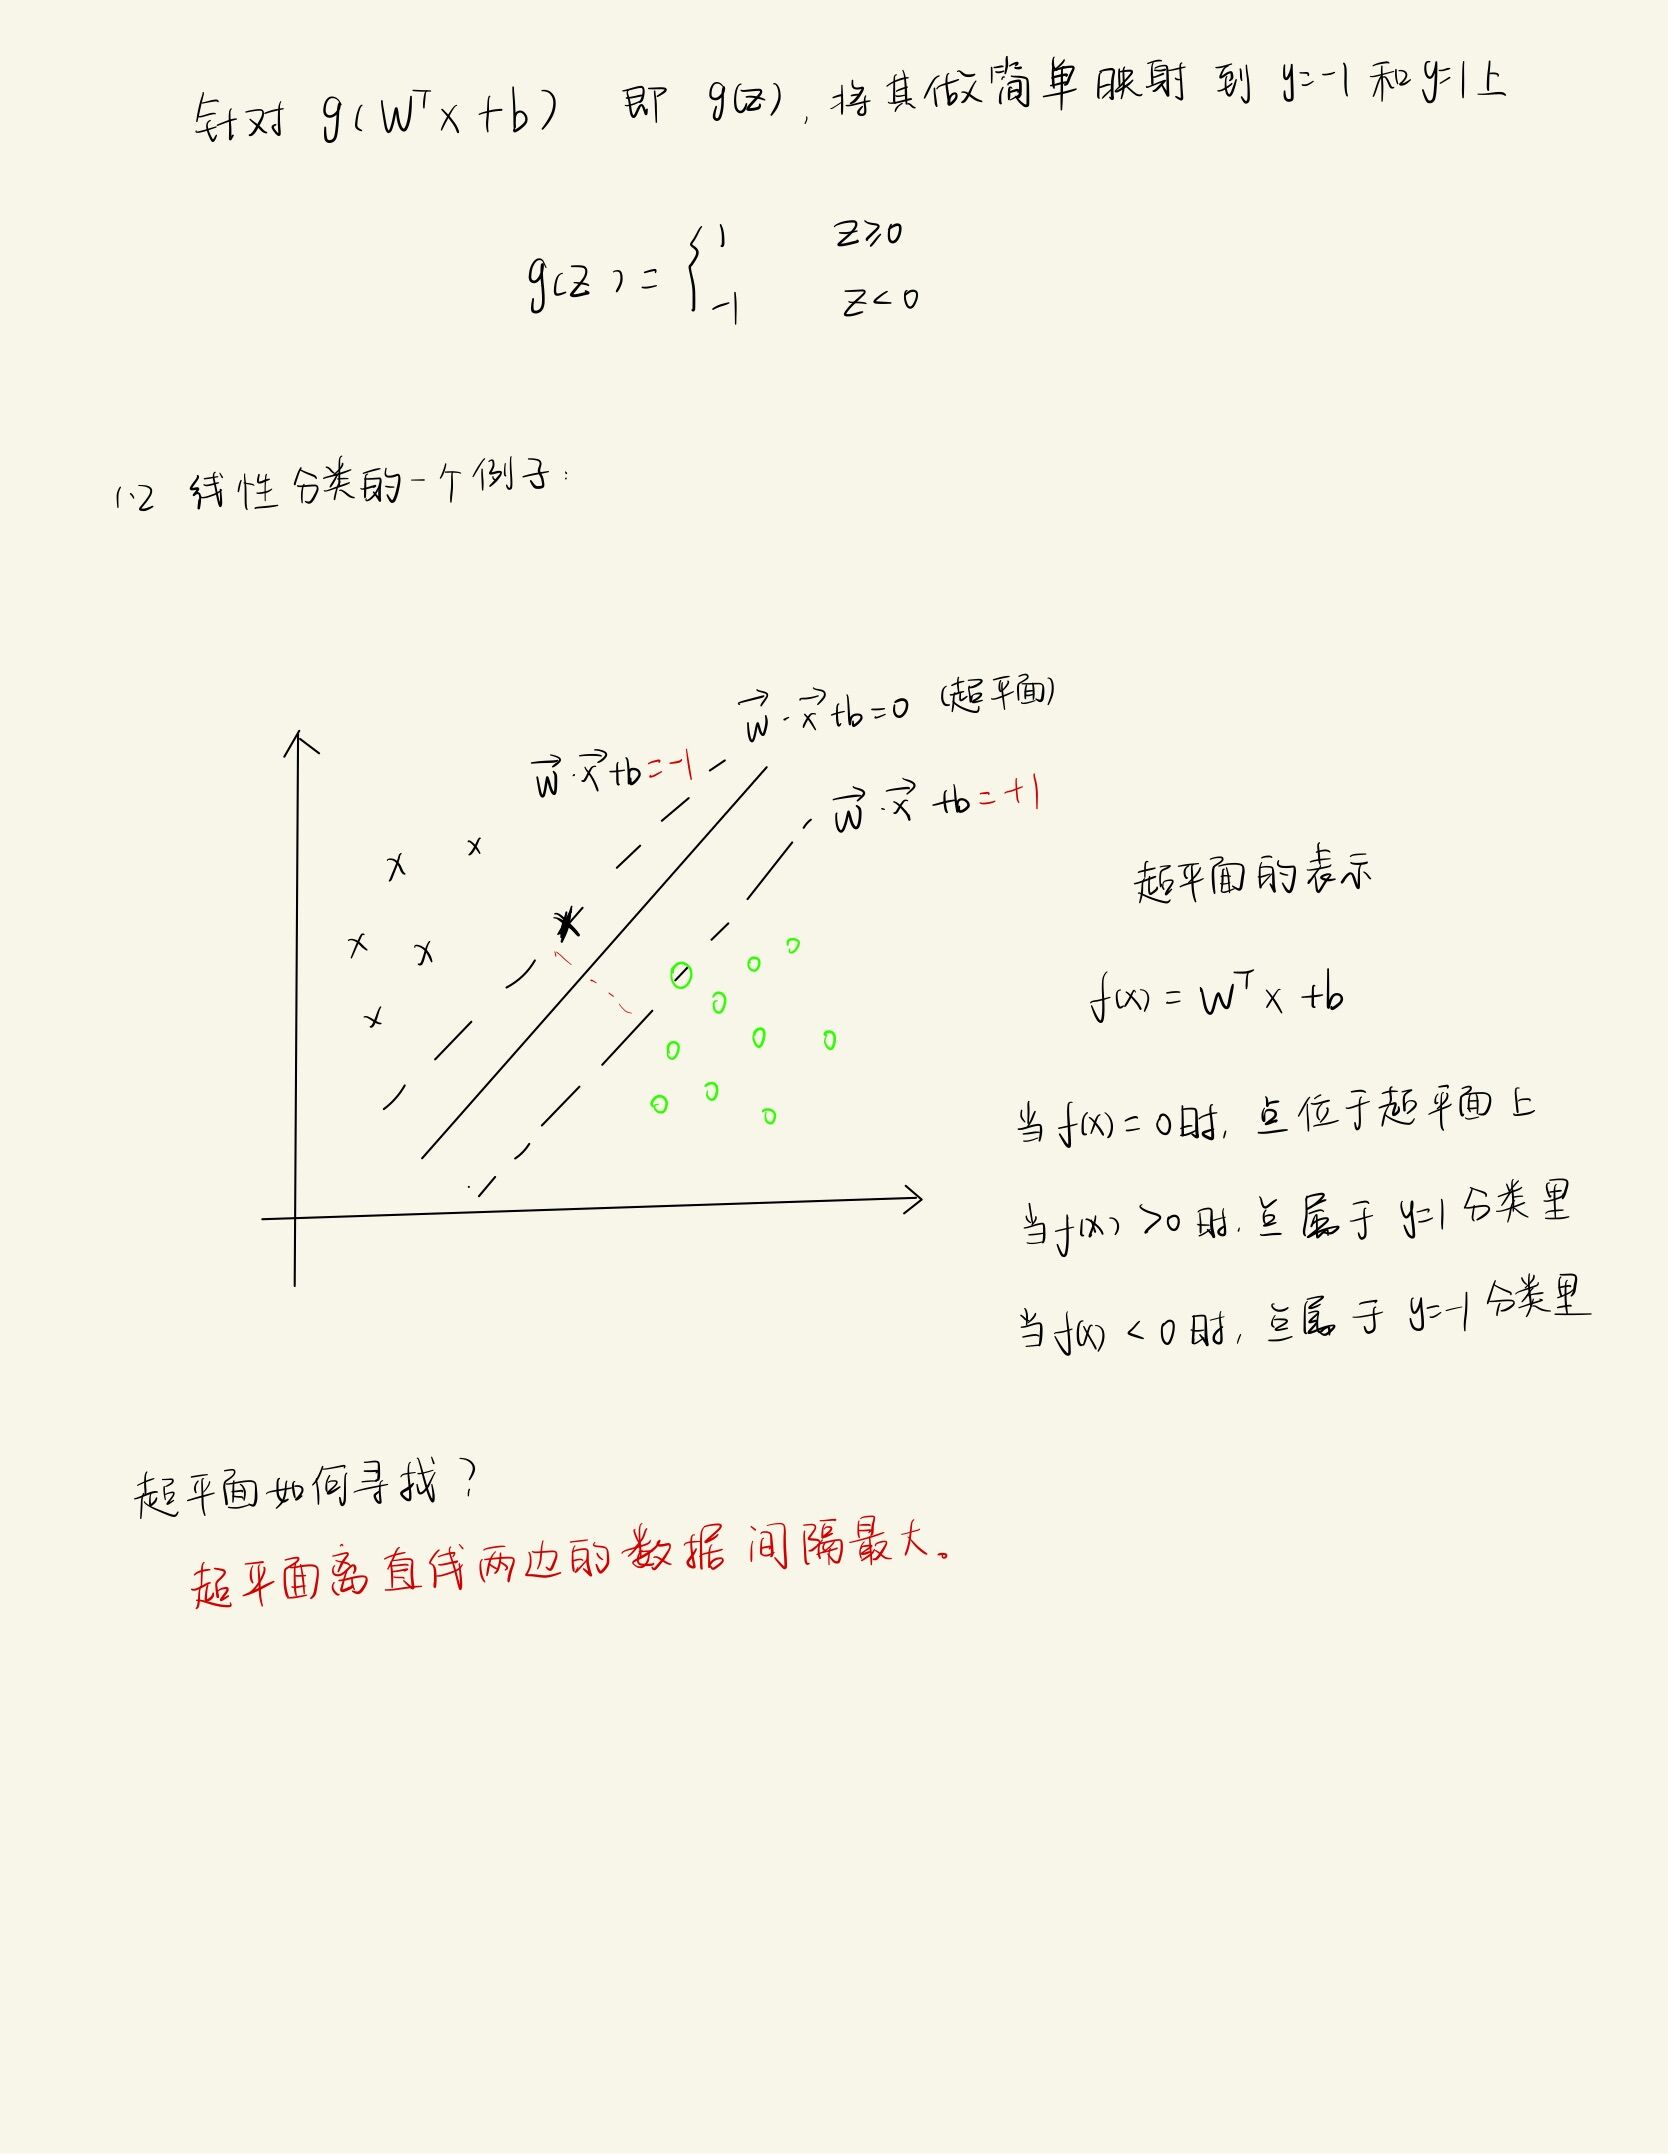 针对 g(Wᵀx+b) 即 g(z), 将其做简单映射到 y=-1 和 y=1上
g(z) = { 1 z≥0
-1 z<0
1.2 线性分类的一个例子:
w⃗·x⃗+b=0 (超平面)
w⃗·x⃗+b=-1
w⃗·x⃗+b=+1
超平面的表示
f(x) = Wᵀx+b
当f(x)=0时, 点位于超平面上
当f(x)>0时, 点属于 y=1 分类里
当f(x)<0时, 点属于 y=-1 分类里
超平面如何寻找?
超平面离直线两边的数据间隔最大。